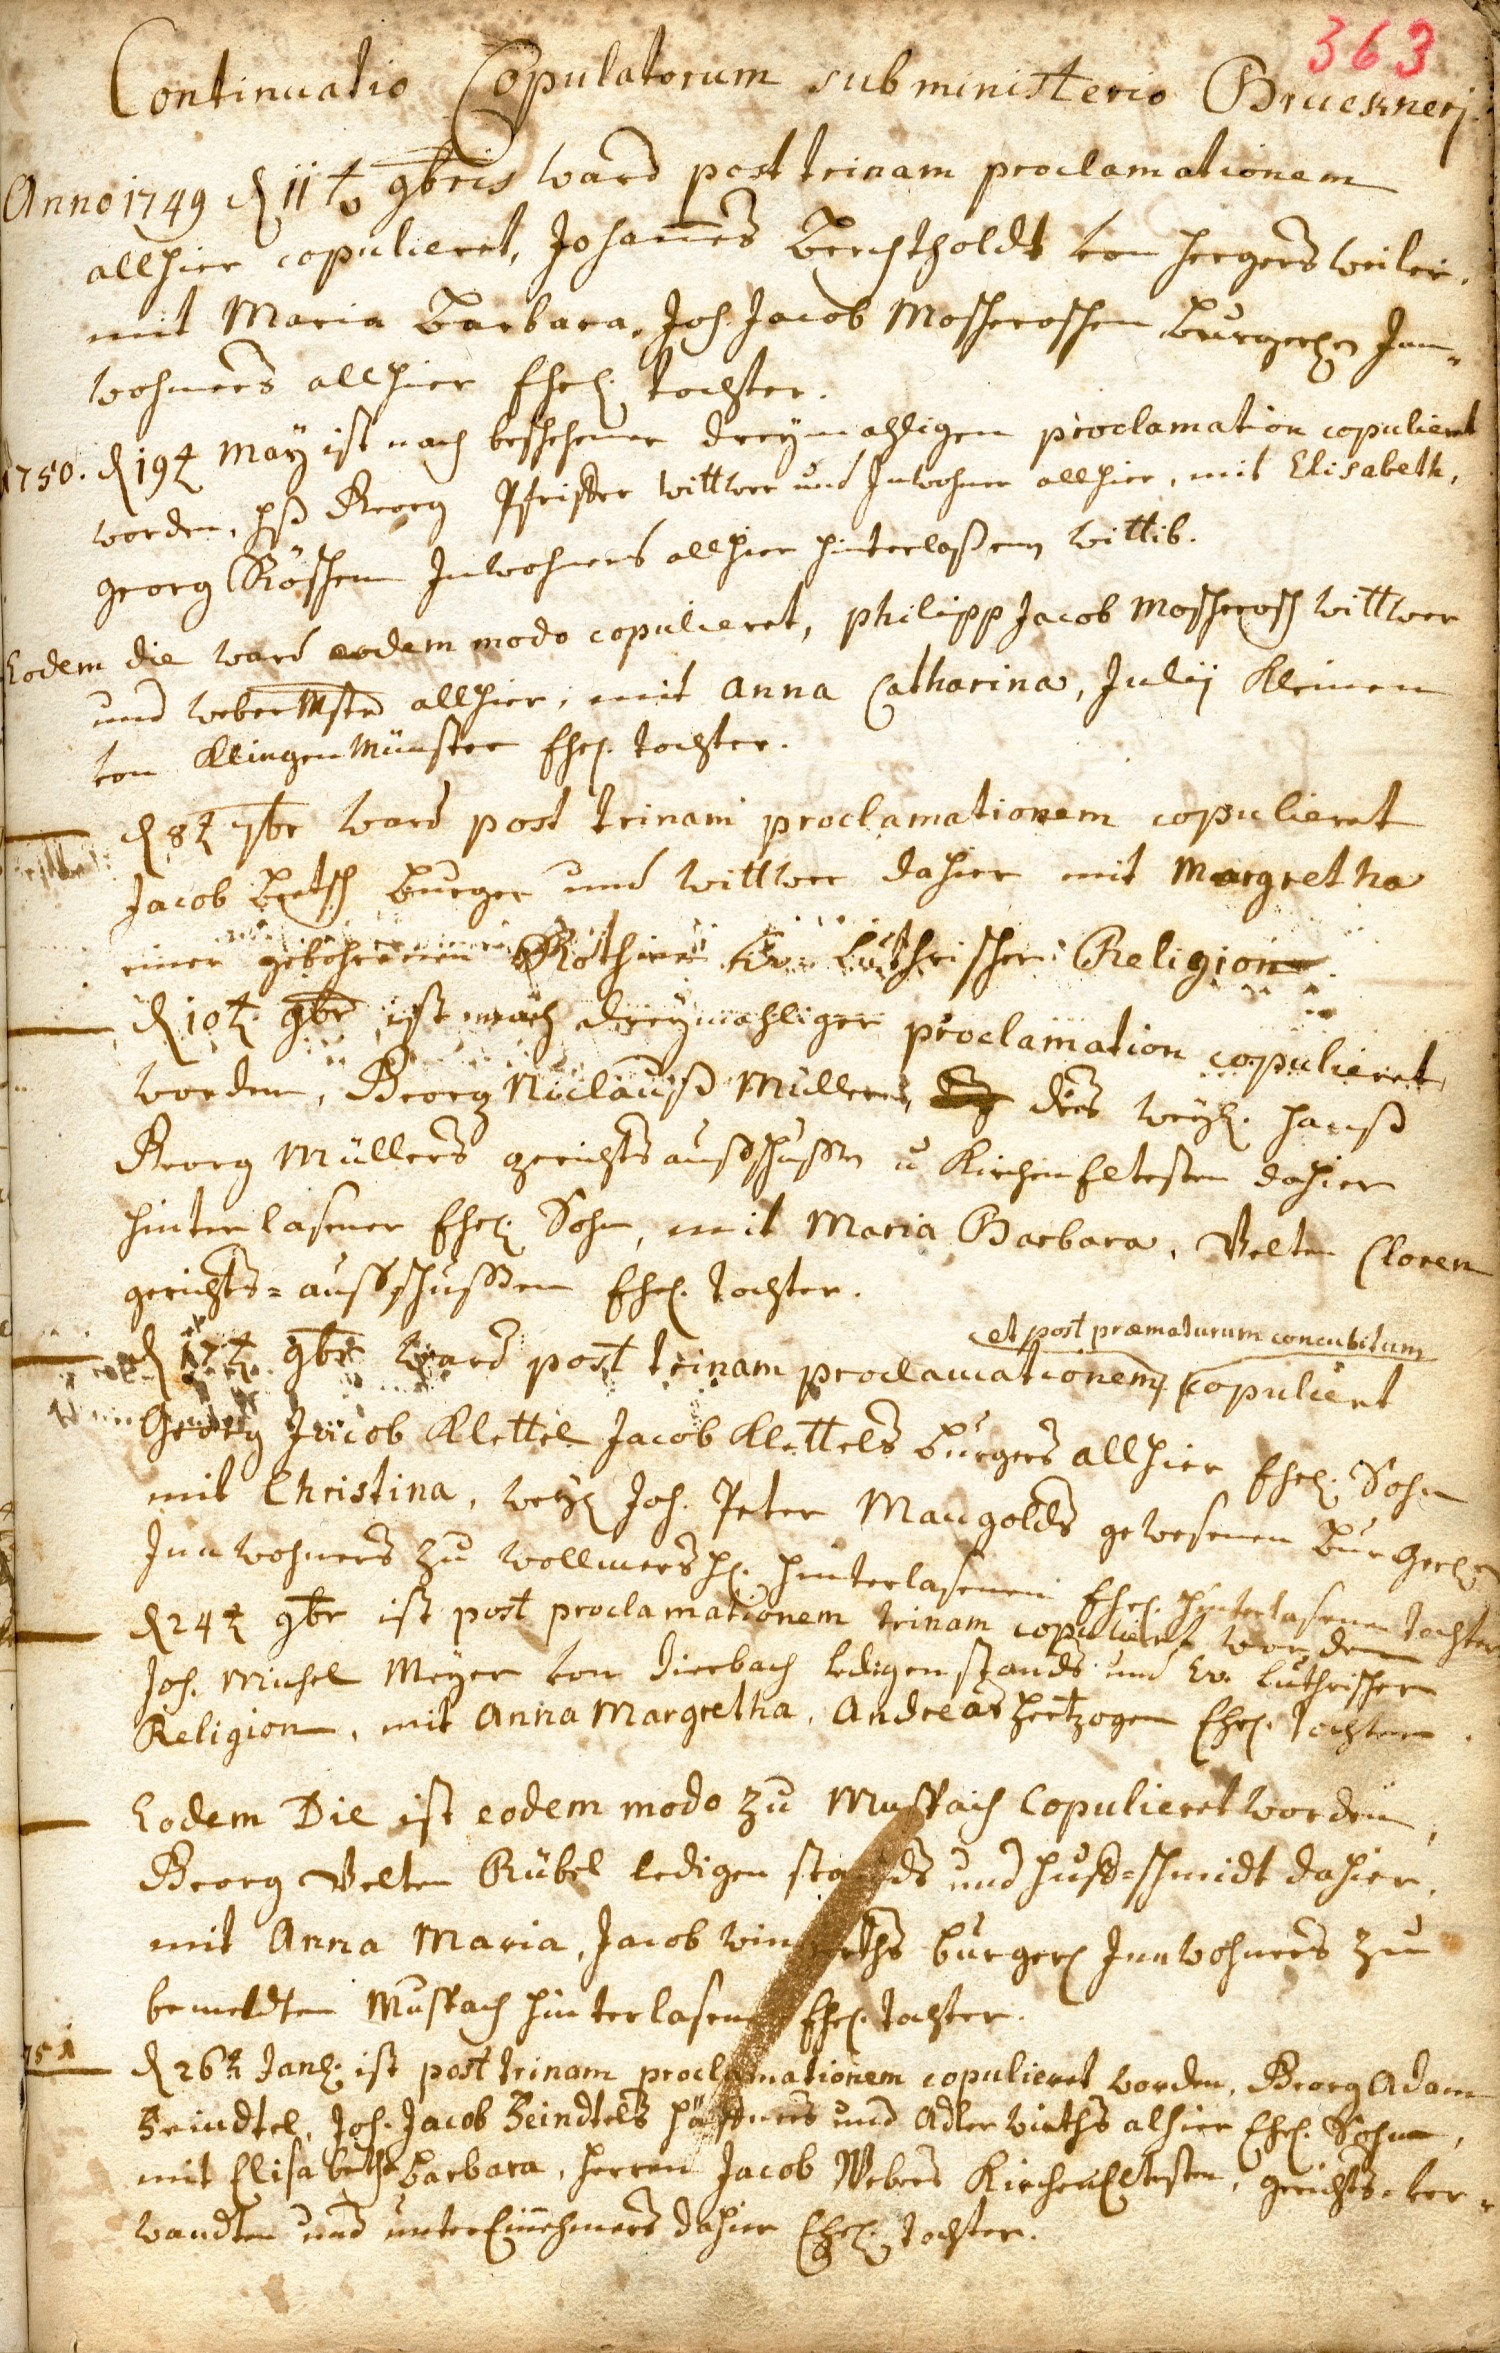 363
Continuatio Copulatorum sub ministerio Bruecknerj.
Anno 1749 d 11t 9bris ward post trinam proclamationem
allhier copulieret, Johannes Berchtholdt von Hergersweiler.
mit Maria Barbara, Joh. Jacob Moscheroschen Burgerl. Inn=
wohners allhier Ehel. tochter.
1750. d 19t May ist nach beschehener dreymahligen proclamation copulieret
worden, Georg Pfister wittwer und Inwohner allhier, mit Elisabeth,
Georg Röschen Inwohners allhier hinterlaßenen wittib.
Eodem die ward eodem modo copulieret, Philipp Jacob Moscherosch wittwer
und weber Mstr allhier, mit Anna Catharina, Julij Kleinen
von KlingenMünster Ehel. tochter.
d 8t 7br ward post trinam proclamationem copulieret
Jacob Bursh Burger und wittwer dahier mit Margretha
einer gebohrenen Röthin Ev. Luthrischer Religion.
d 10t. 9br ist nach dreymahliger proclamation copulieret
worden, Georg Niclauß Müller, des weyl. Hanß
Georg Müllers gerichts außschußen u Kirchen Eltesten dahier
hinterlasener Ehel. Sohn, mit Maria Barbara, Velten Cloren
gerichts=außschußen Ehel. tochter.
et post præmaturum concubitum
d 17t. 9br ward post trinam proclamationem copuliert
Georg Jacob Klettel Jacob Klettels Burgers allhier Ehel. Sohn
mit Christina, weyl Joh. Peter Mangolds gewesenen Burgerl.
Innwohners zu Vollmersh. hinterlasenen Ehel. hinterlasene tochter
d 24t 9br ist post proclamationem trinam copulieret worden
Joh. Michel Meyer von Dierbach ledigen stands und Ev. Luthrischer
Religion, mit Anna Margretha, Andreas Hertzogen Ehel. tochter.
Eodem Die ist eodem modo zu Mußbach Copulieret worden,
Georg Velten Rübel ledigen stands und Huff=schmidt dahier,
mit Anna Maria, Jacob burgerl Innwohners zu
bemeldten Mußbach hinterlasene Ehel. tochter.
1751 d 26t Jan. ist post trinam proclamationem copulieret worden, Georg Adam
Zeindtel, Joh. Jacob Zeindtels Häffners und Adlerwirths alhier Ehel. Sohn,
mit Elisabetha Barbara, Herren Jacob Webers KirchenEltesten, gerichts=ver=
wandten und unterEinnehmers dahier Ehel. tochter.